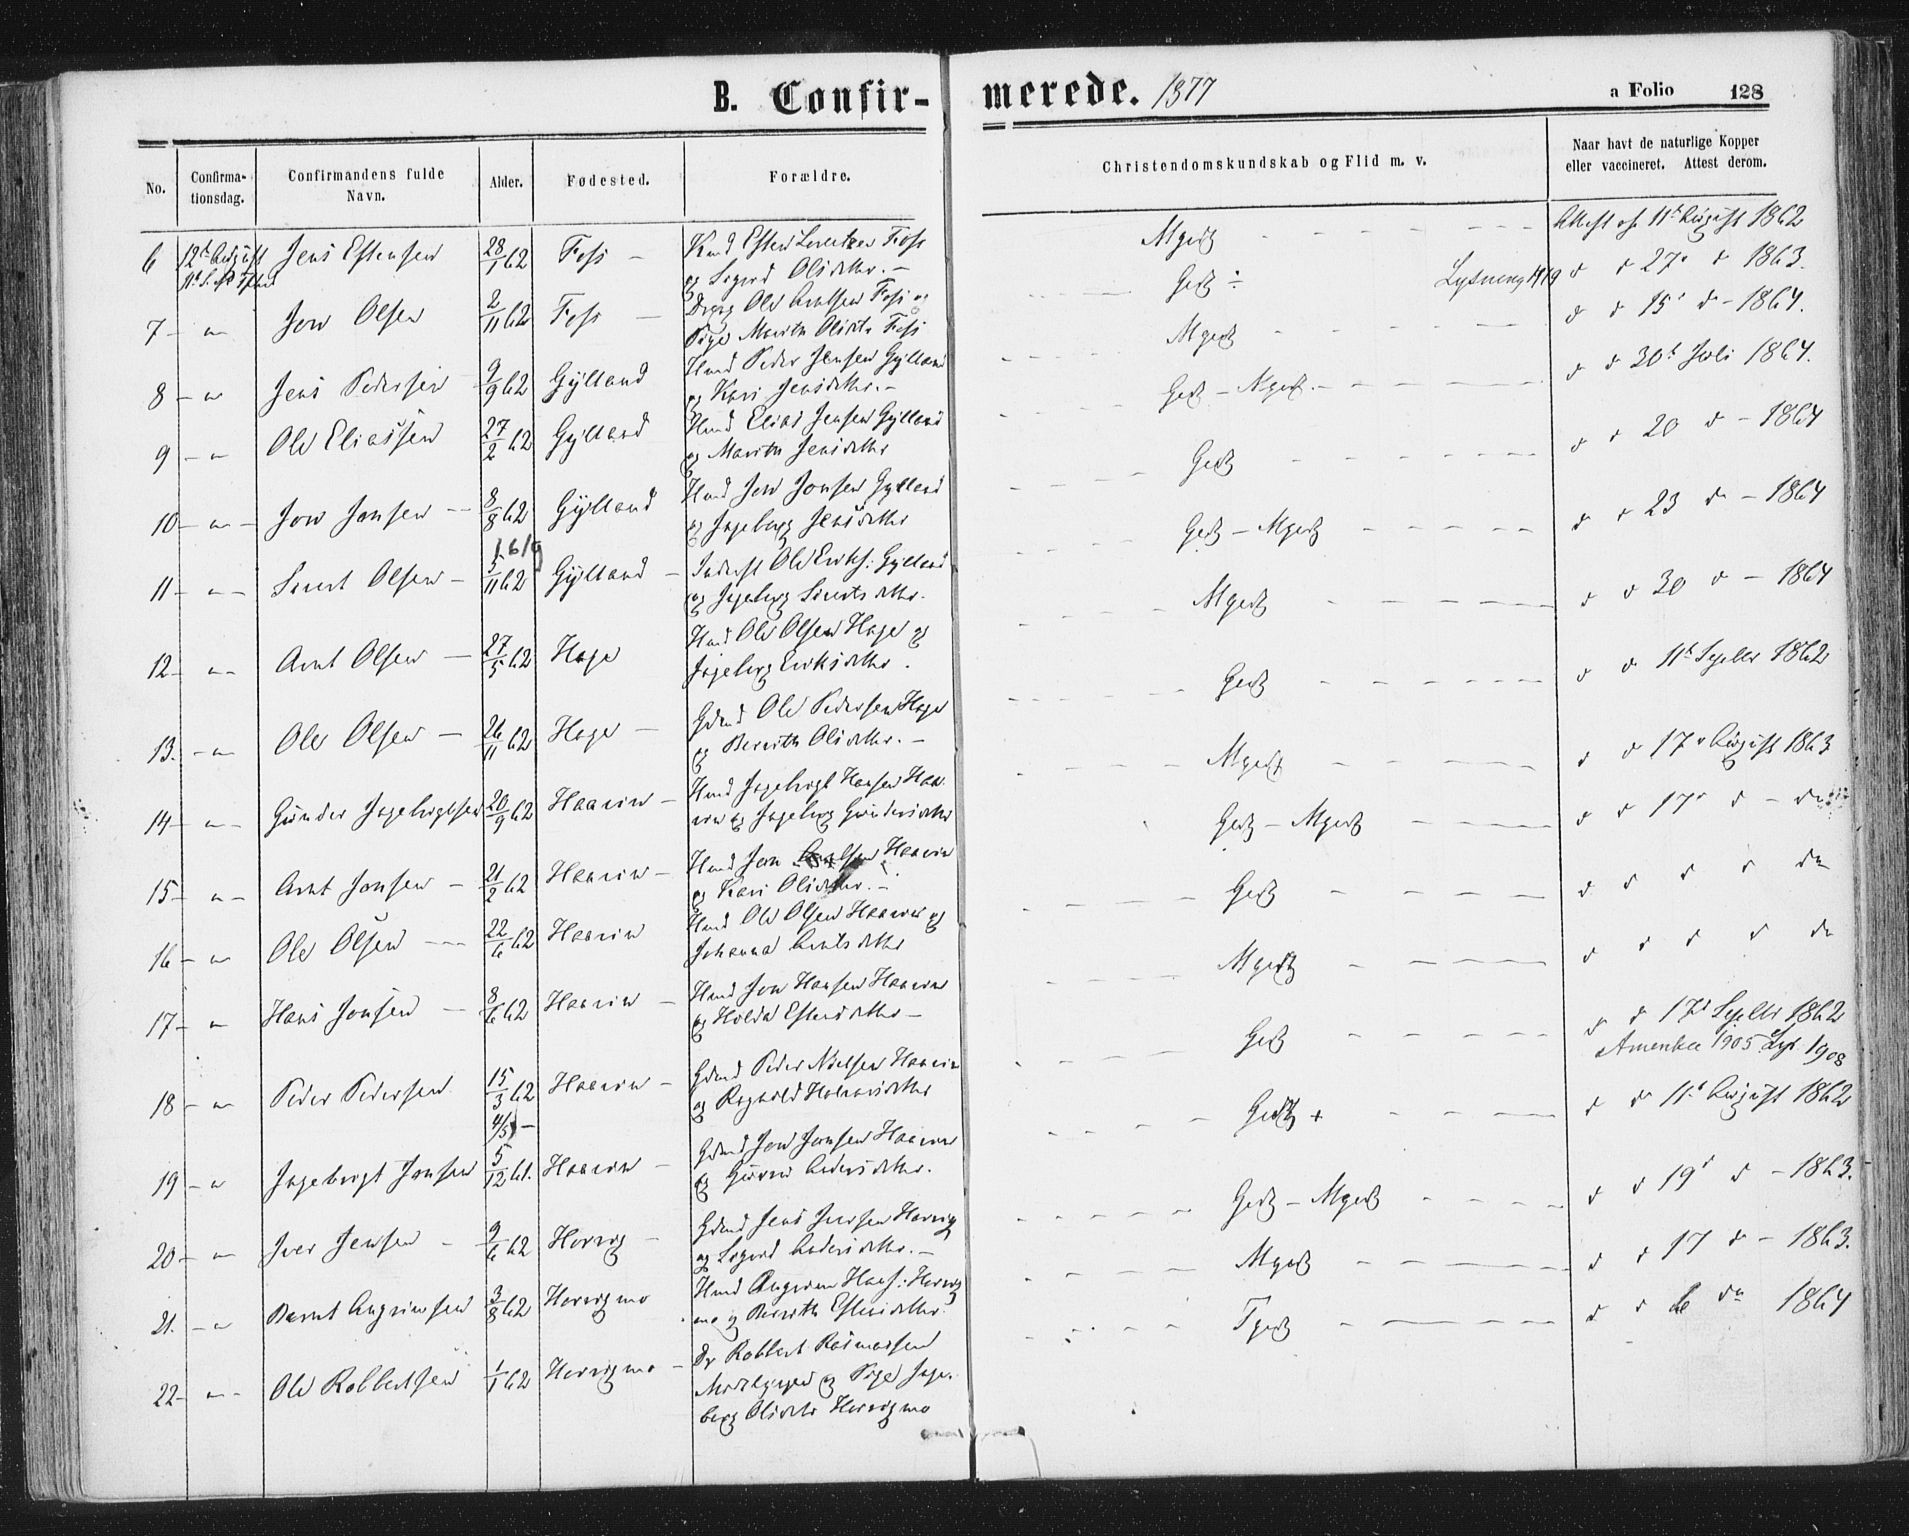 B. Confir- merede. 1877
a Folio 128
No.
Confirma-
tionsdag.
Confirmandens fulde
Navn.
Alder.
Fødested.
Forældre.
Christendomskundskab og Flid m. v.
Naar havt de naturlige Kopper
eller vaccineret. Attest derom.
6 12te August Jens Estensen 28/1 62 Foss – Hmd Esten Foss
og Sigrid Olsdtr. –
Mgodt – – – – – Attest af 11te August 1862
7 – " Jon Olsen 2/11 62 Foss – Drgg Ole Arntsen Foss og
Pige Marith Olsdtr Foss
Godt ÷ Lysning 1919 d d 27d d 1863.
8 – " Jens Pedersen 9/9 62 Gylland Hmd Peder Jensen Gylland
og Kari Jensdtr. –
Mgodt – – – d d 15d d – 1864.
9 – " Ole Eliassen 27/2 62 Gylland Hmd Elias Jensen Gylland
og Marith Jensdtr
Godt – Mgodt – – – d d 30te Juli 1864.
10 – " – Jon Jonsen – 8/8 62 Gylland Hmd Jon Jonsen Gylland
og Ingeborg Jensdtr
Godt – – – d d 20 d – 1864
16/9
11 – " – Sivert Olsen – 5/11 62 Gylland – Inderst Ole Eriks: Gylland
og Ingeborg Sivertsdtr.
Godt – Mgodt – – – d d 23 d – 1864
12 – " Arnt Olsen – 27/5 62 Hage Hmd Ole Olsen Hage og
Ingeborg Eriksdtr.
Mgodt – – – d d 30 d – 1864
13. – " Ole Olsen – 26/11 62 Hage – Gdmd Ole Pedersen Hage
og Berith Olsdtr. –
Godt – – – d d 11te Septbr 1862
14 – " – Gunder Ingebrigtsen 20/9 62 Haarin – Hmd Ingebrigt Hansen Haa-
rin og Ingeborg Gundersdtr
Mgodt – – – d d 17d August 1863
15 – " – Arnt Jonsen – 21/2 62 Haarin – Hmd Jon Haarin
og Kari Olsdtr. –
Godt – Mgodt – – – d d 17d d – d
16 – " Ole Olsen – – 22/6 62 Haarin Hmd Ole Olsen Haarin og
Johanna Arntsdtr
Godt – – – d d d d d
17 – " Hans Jonsen – 8/6 62 Haarin – Hmd Jon Hansen Haarin
og Holda Estensdtr –
Mgodt – – – d d d d d
18 – " Peder Pedersen 15/3 62 Haarin – Gdmd Peder Nielsen Haarin
og Ragnhild Halvorsdtr
Godt – – – d d 17d Septbr 1862
Amerika 1905 1908
4/5 –
19 – " Ingebrigt Jonsen 5/12 61. Haarin – Gdmd Jon Jonsen Haarin
og Guruu Andersdtr.
Godt + – – – d d 11te August 1862
20 – " Iver Jensen – 9/6 62 Horrig – Gdmd Jens Iversen Horrig
og Sigrid Andersdtr. –
Godt – Mgodt – – – d d 19d d – 1863.
21. – " Bernt Angrimsen 3/8 62 Horrigmo Hmd Angrim Hans: Horrig
mo og Berith Estensdtr.
Mgodt – – – d d 17 d – 1863.
22 – " – Ole Robbertsen 1/1 62 Horrigmo – Dr Robbert Rasmussen
og Pige Inge-
borg Olsdtr Horrigmo
Tgodt – – – d d 6 d 1864